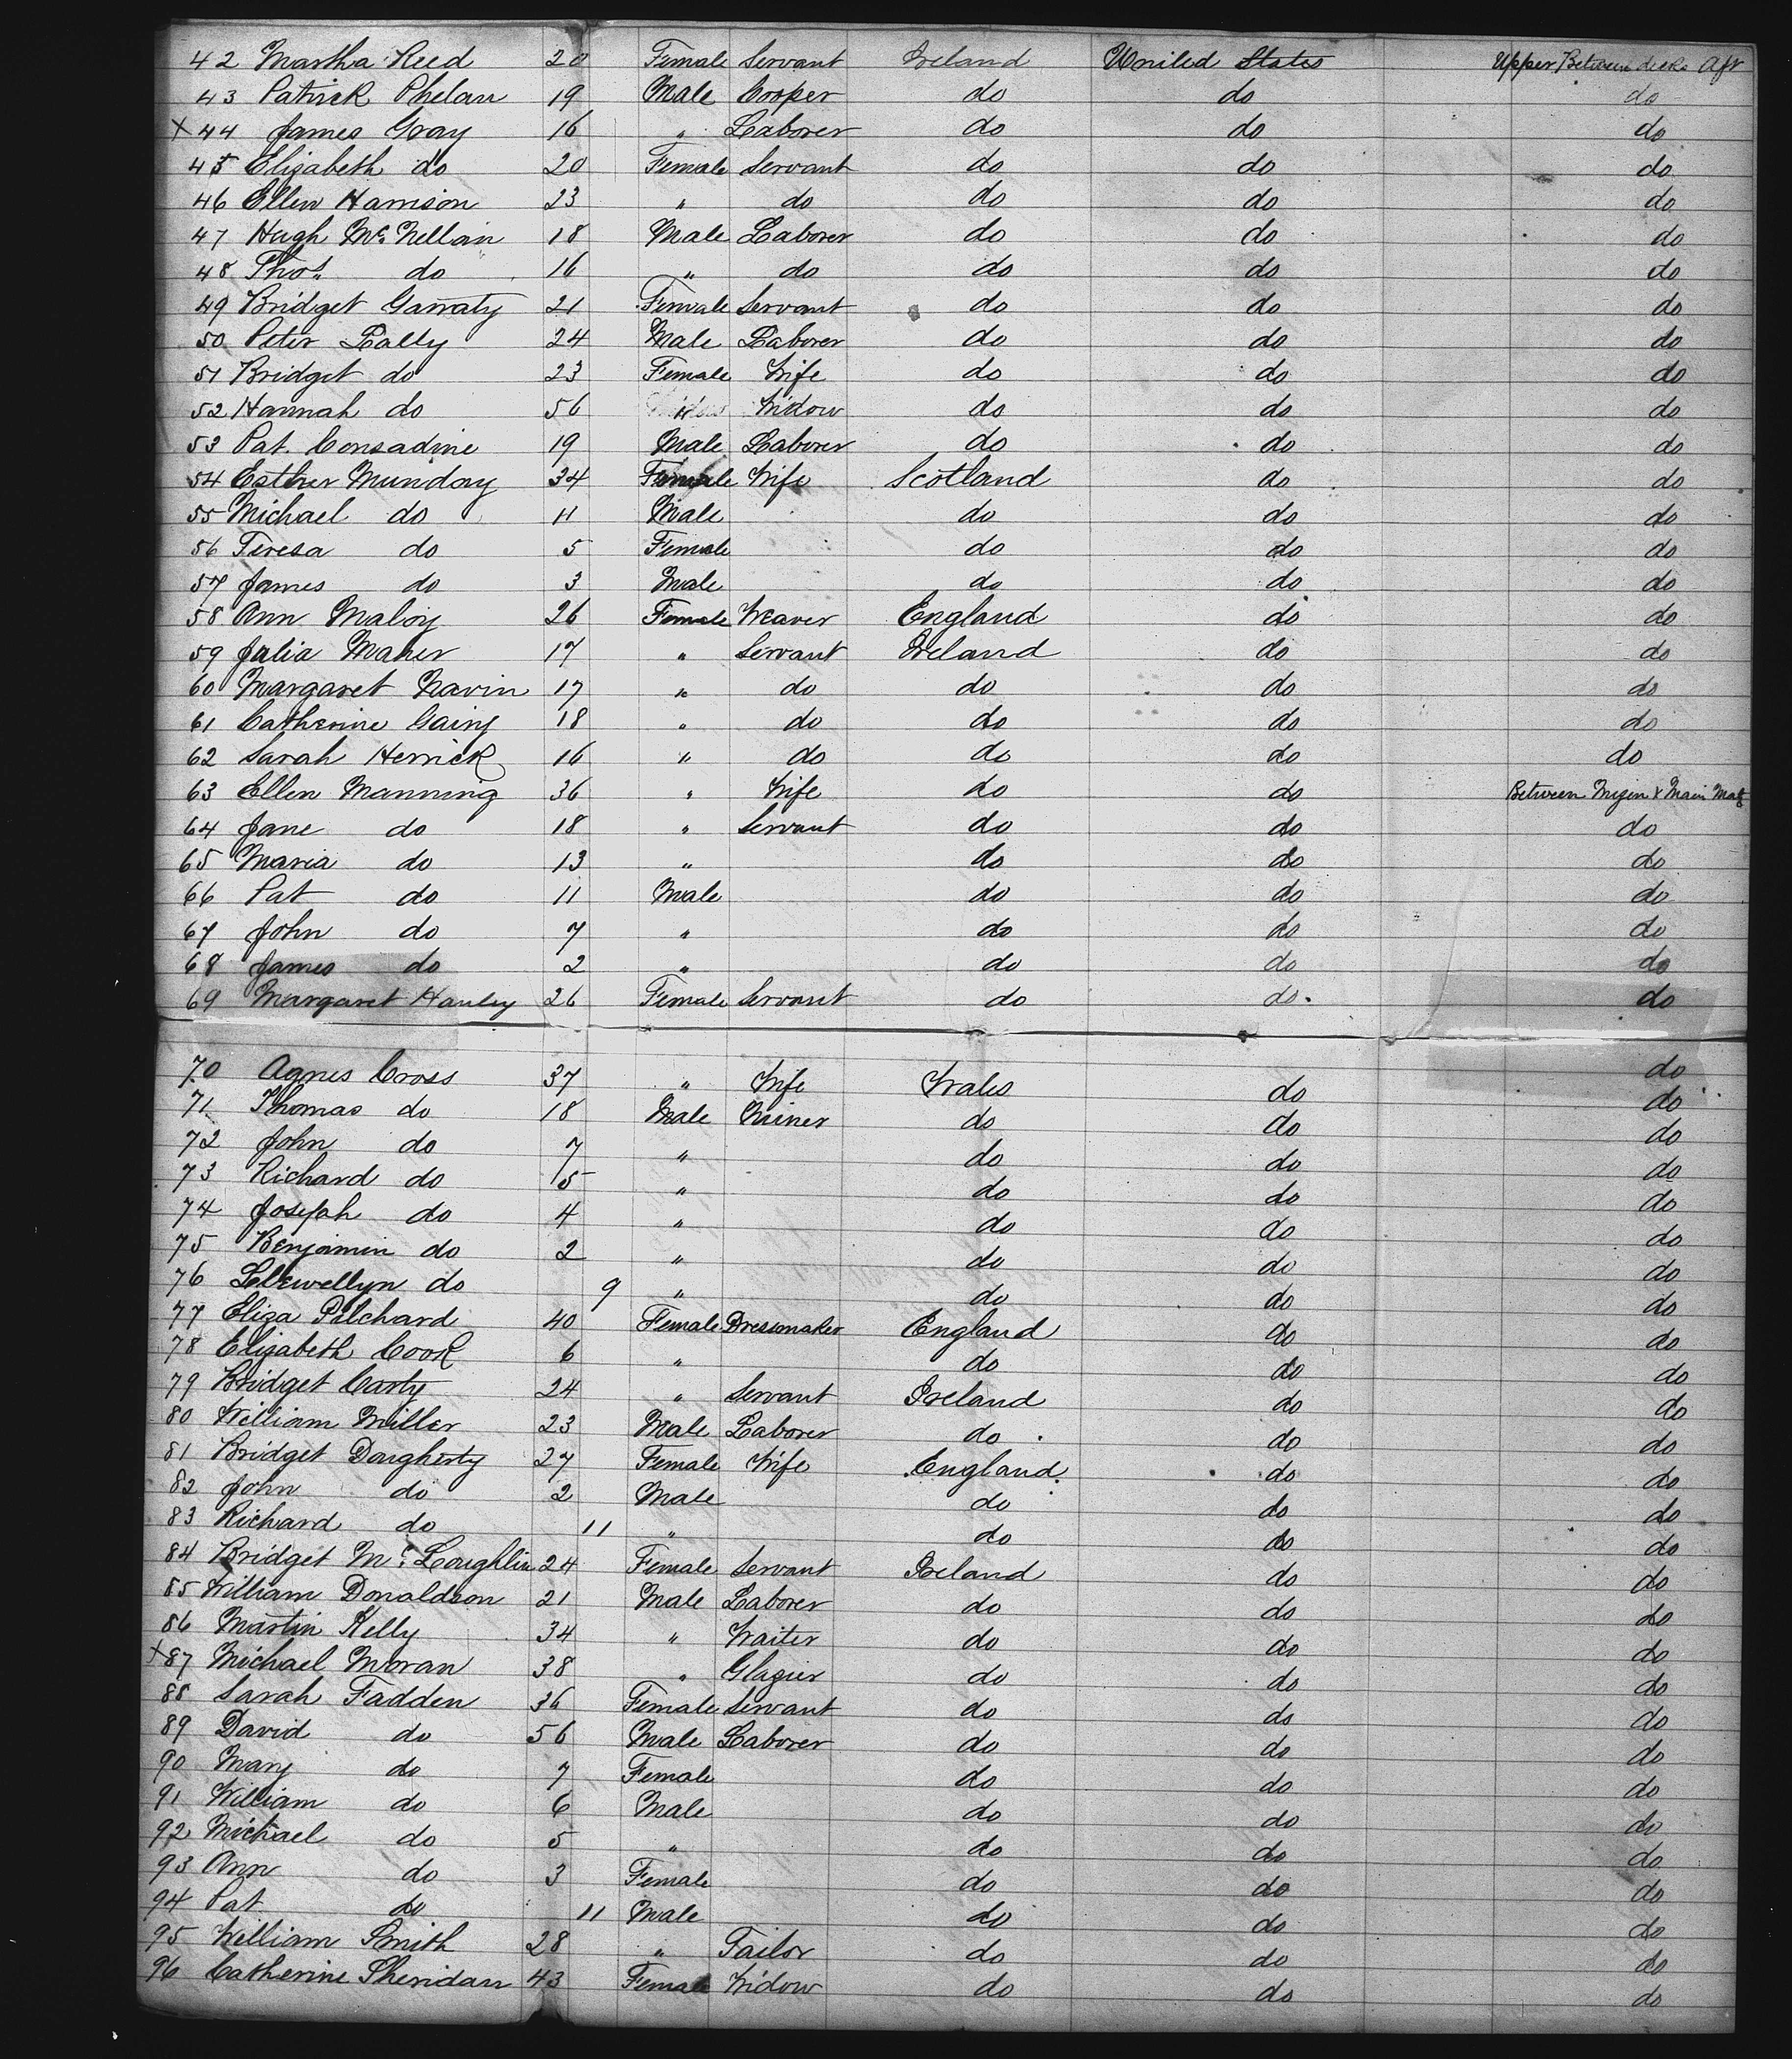 42 Martha Reed 20 Female Servant Ireland United States Upper Between decks Aft
43 Patrick Phelan 19 Male Cooper do do do
x 44 James Gray 16 " Laborer do do do
45 Elizabeth do 20 Female Servant do do do
46 Ellen Harrison 23 " do do do do
47 Hugh McNellan 18 Male Laborer do do do
48 Thos. do 16 " do do do do
49 Bridget Garraty 21 Female Servant do do do
50 Peter Lally 24 Male Laborer do do do
51 Bridget do 23 Female Wife do do do
52 Hannah do 56 " Widow do do do
53 Pat. Consadine 19 Male Laborer do do do
54 Esther Munday 34 Female Wife Scotland do do
55 Michael do 11 Male do do do
56 Teresa do 5 Female do do do
57 James do 3 Male do do do
58 Ann Maloy 26 Female Weaver England do do
59 Julia Maher 17 " Servant Ireland do do
60 Margaret Navin 17 " do do do do
61 Catherine Gainy 18 " do do do do
62 Sarah Herrick 16 " do do do do
63 Ellen Manning 36 " Wife do do Between Mizen & Main Mast
64 Jane do 18 " Servant do do do
65 Maria do 13 " do do do
66 Pat do 11 Male do do do
67 John do 7 " do do do
68 James do 2 " do do do
69 Margaret Hanley 26 Female Servant do do do
70 Agnes Cross 37 " Wife Wales do do
71 Thomas do 18 Male Miner do do do
72 John do 7 " do do do
73 Richard do 5 " do do do
74 Joseph do 4 " do do do
75 Benjamin do 2 " do do do
76 Llewellyn do 9 " do do do
77 Eliza Pilchard 40 Female Dressmaker England do do
78 Elizabeth Cook 6 " do do do
79 Bridget Carty 24 " Servant Ireland do do
80 William Miller 23 Male Laborer do do do
81 Bridget Dougherty 27 Female Wife England do do
82 John do 2 Male do do do
83 Richard do 11 " do do do
84 Bridget McLoughlin 24 Female Servant Ireland do do
85 William Donaldson 21 Male Laborer do do do
86 Martin Kelly 34 " Waiter do do do
x 87 Michael Moran 38 " Glazier do do do
88 Sarah Fadden 36 Female Servant do do do
89 David do 56 Male Laborer do do do
90 Mary do 7 Female do do do
91 William do 6 Male do do do
92 Michael do 5 " do do do
93 Ann do 3 Female do do do
94 Pat do 11 Male do do do
95 William Smith 28 " Tailor do do do
96 Catherine Sheridan 43 Female Widow do do do